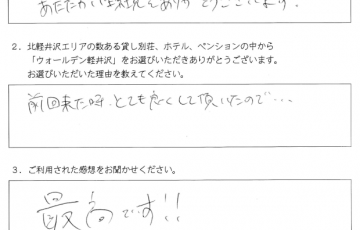 あたたかい環境をありがとうございます!
2. 北軽井沢エリアの数ある貸し別荘、ホテル、ペンションの中から
「ウォールデン軽井沢」をお選びいただきありがとうございます。
お選びいただいた理由を教えてください。
前回来た時、とても良くして頂いたので…
3. ご利用された感想をお聞かせください。
最高です!!